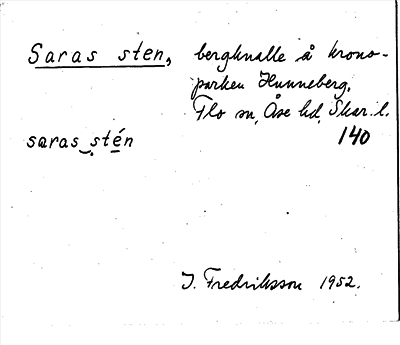 Saras sten, bergknalle å krono-
parken Hunneberg.
Flo sn, Åse hd, Skar. l.
saras stén 140
I. Fredriksson 1952.